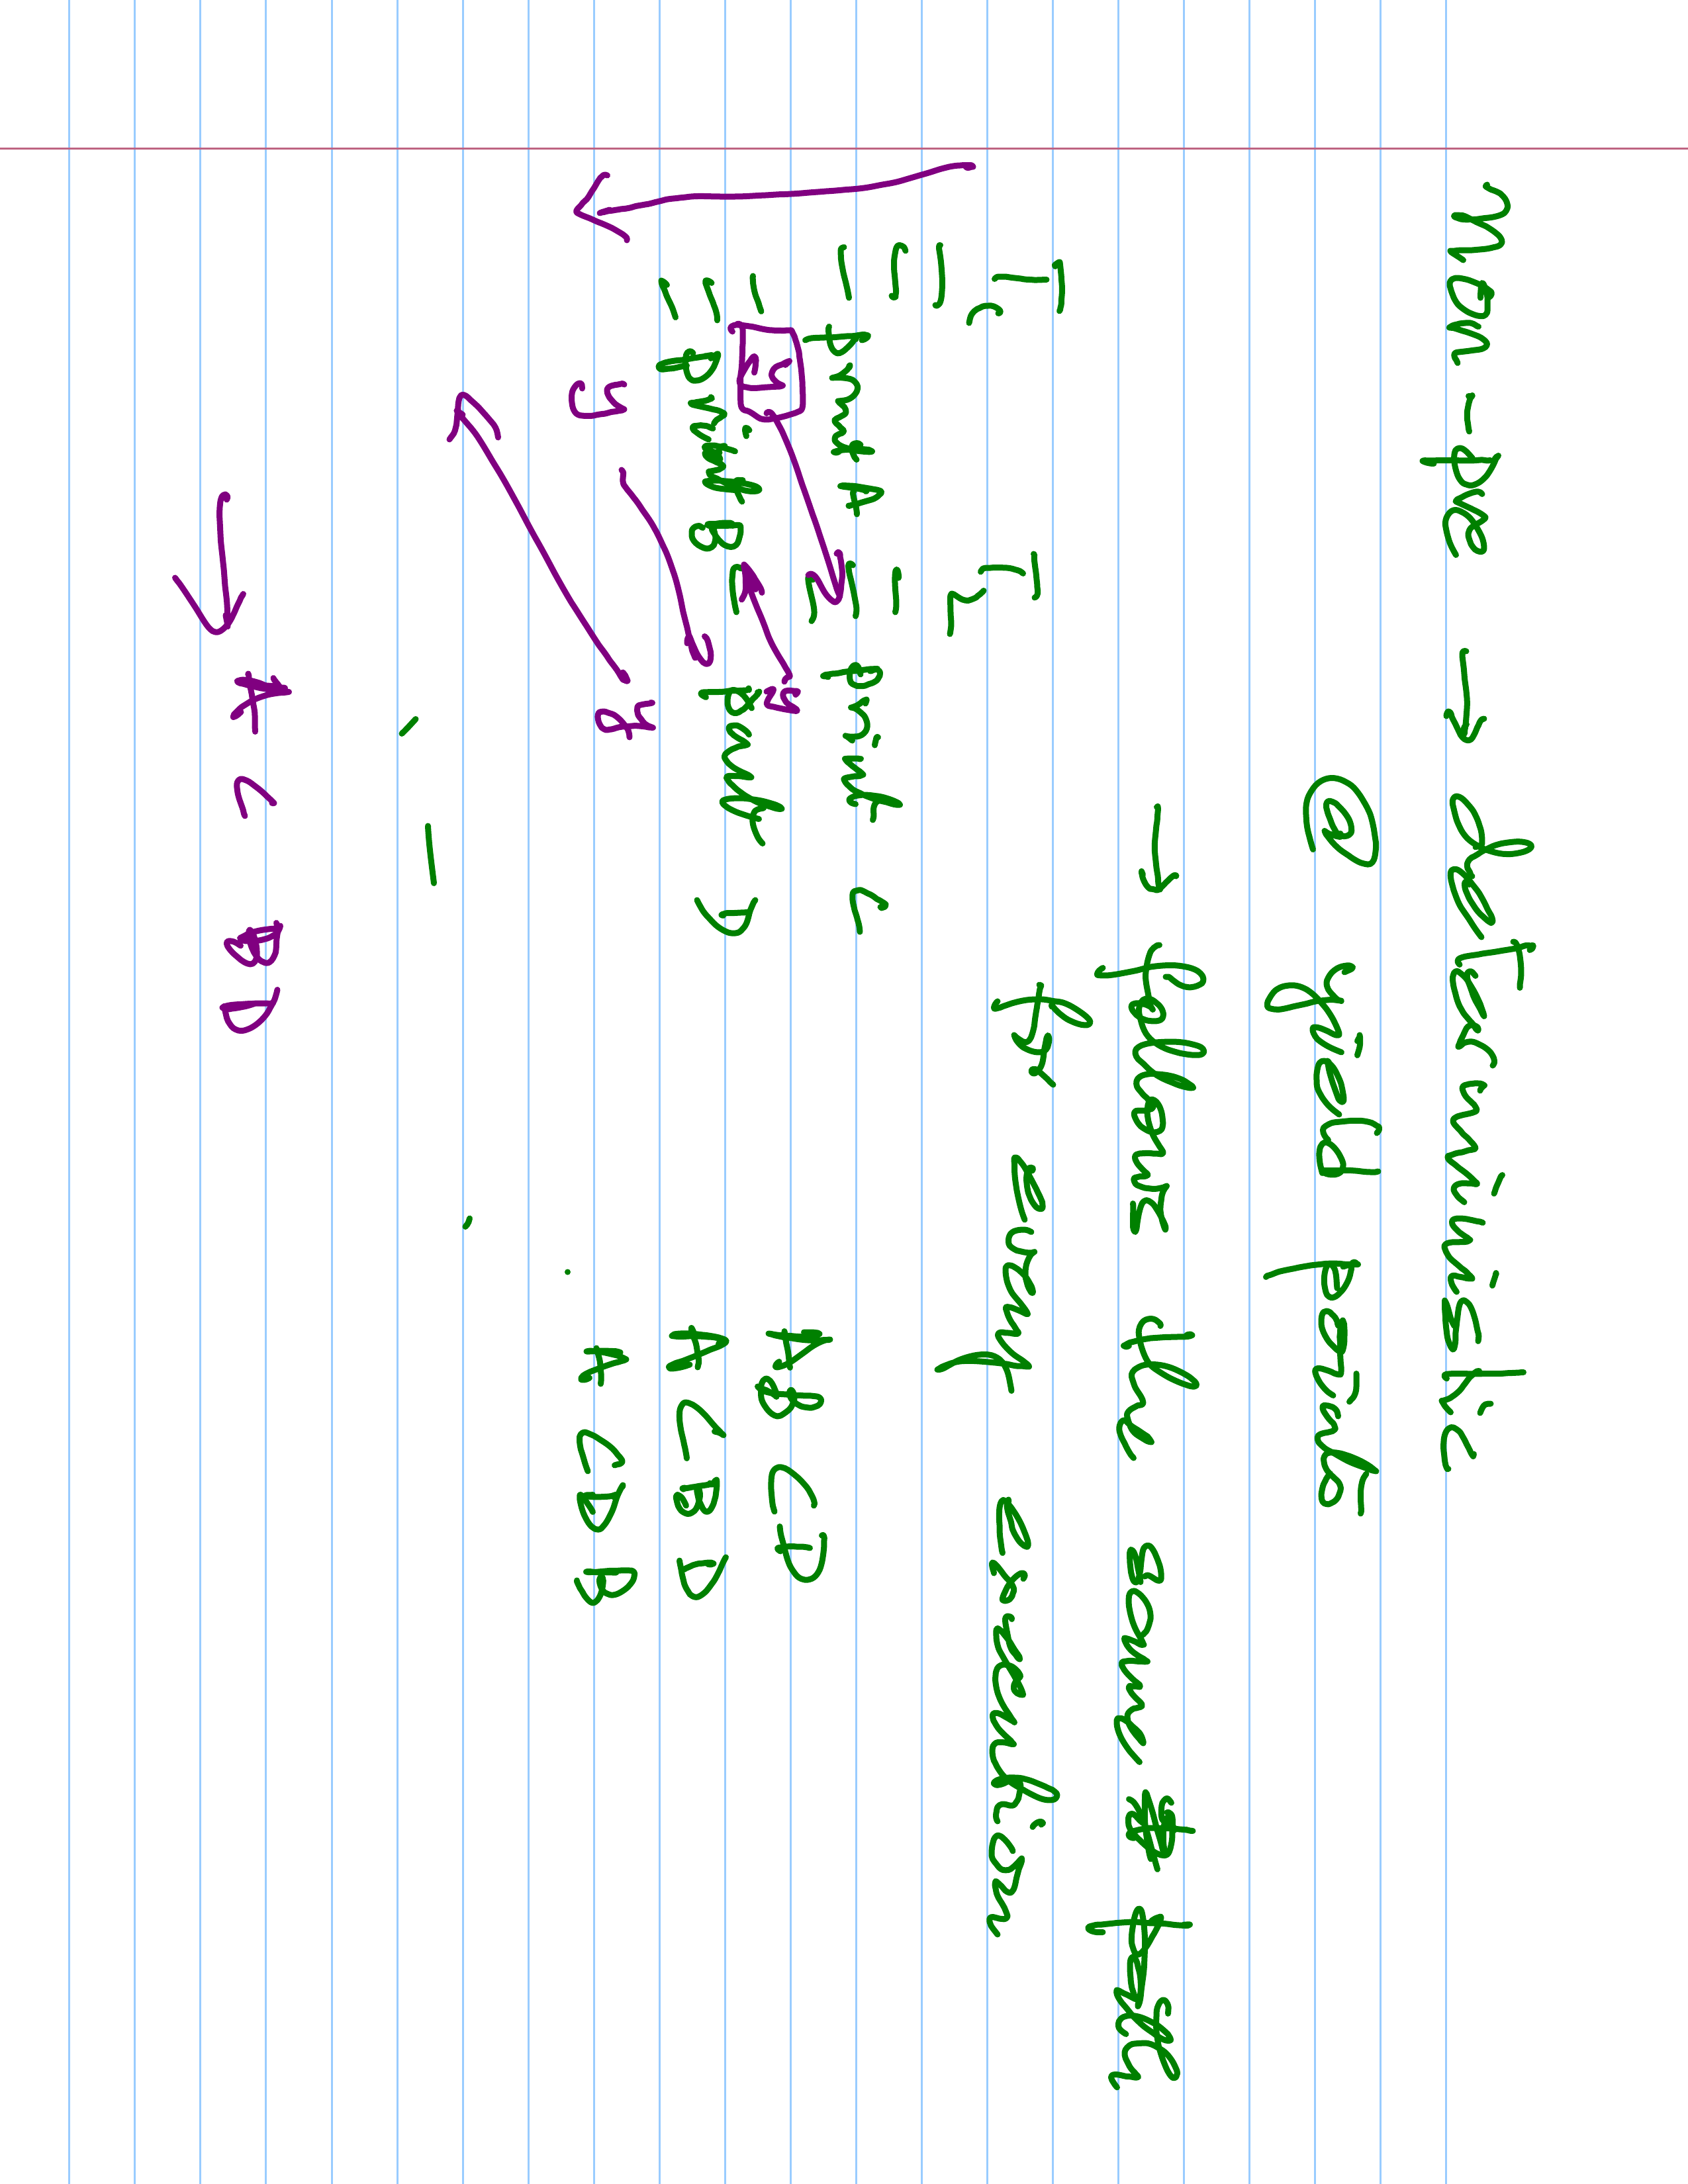 Non-pre → deterministic
@ yield points
→ follows the same path
for every execution
T₁ T₂
print A print C
y
y
print B print D
y
A B C D
A C B D
A C D B
→ A C B D